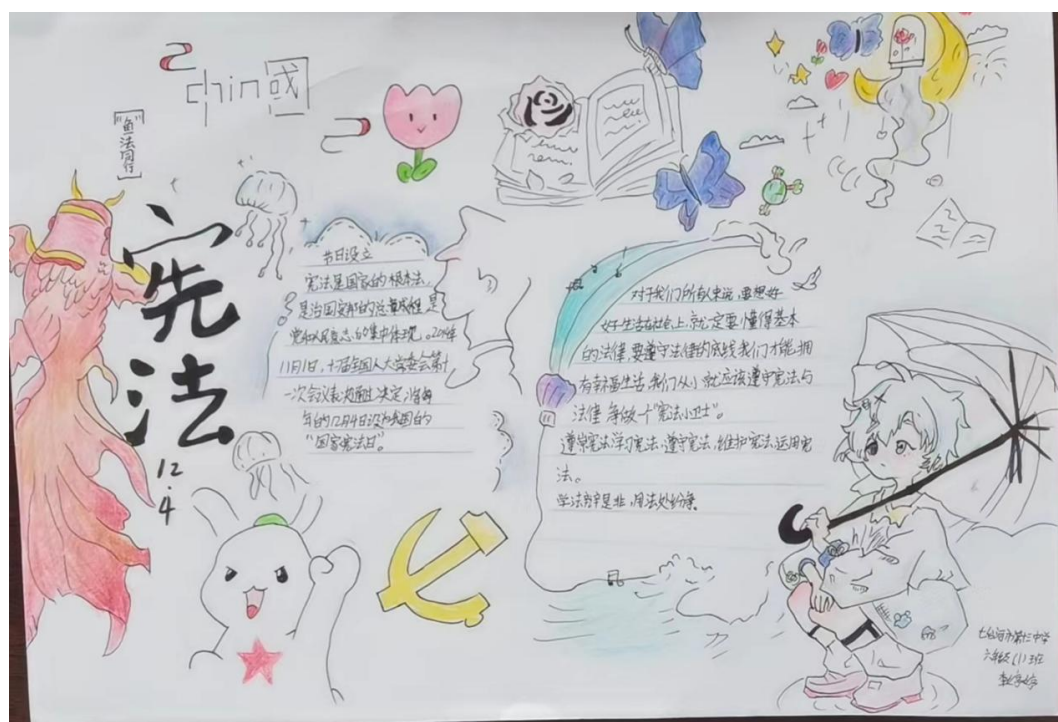 chin國
“鱼”法同行
宪法
12.4
节日设立
宪法是国家的根本法,
是治国安邦的总章程,是
党和人民意志的集中体现。2014年
11月1日,十二届全国人大常委会第十
一次会议表决通过决定,将每
年的12月4日设为我国的
“国家宪法日”。
对于我们所有人来说,要想好
好生活在社会上,就一定要懂得基本
的法律,要遵守法律的底线我们才能拥
有幸福生活,我们从小就应该遵守宪法与
法律,争做一个“宪法小卫士”。
遵崇宪法,学习宪法,遵守宪法,维护宪法,运用宪
法。
学法守是非,用法处纷争。
七台河市第十三中学
六年级(1)班